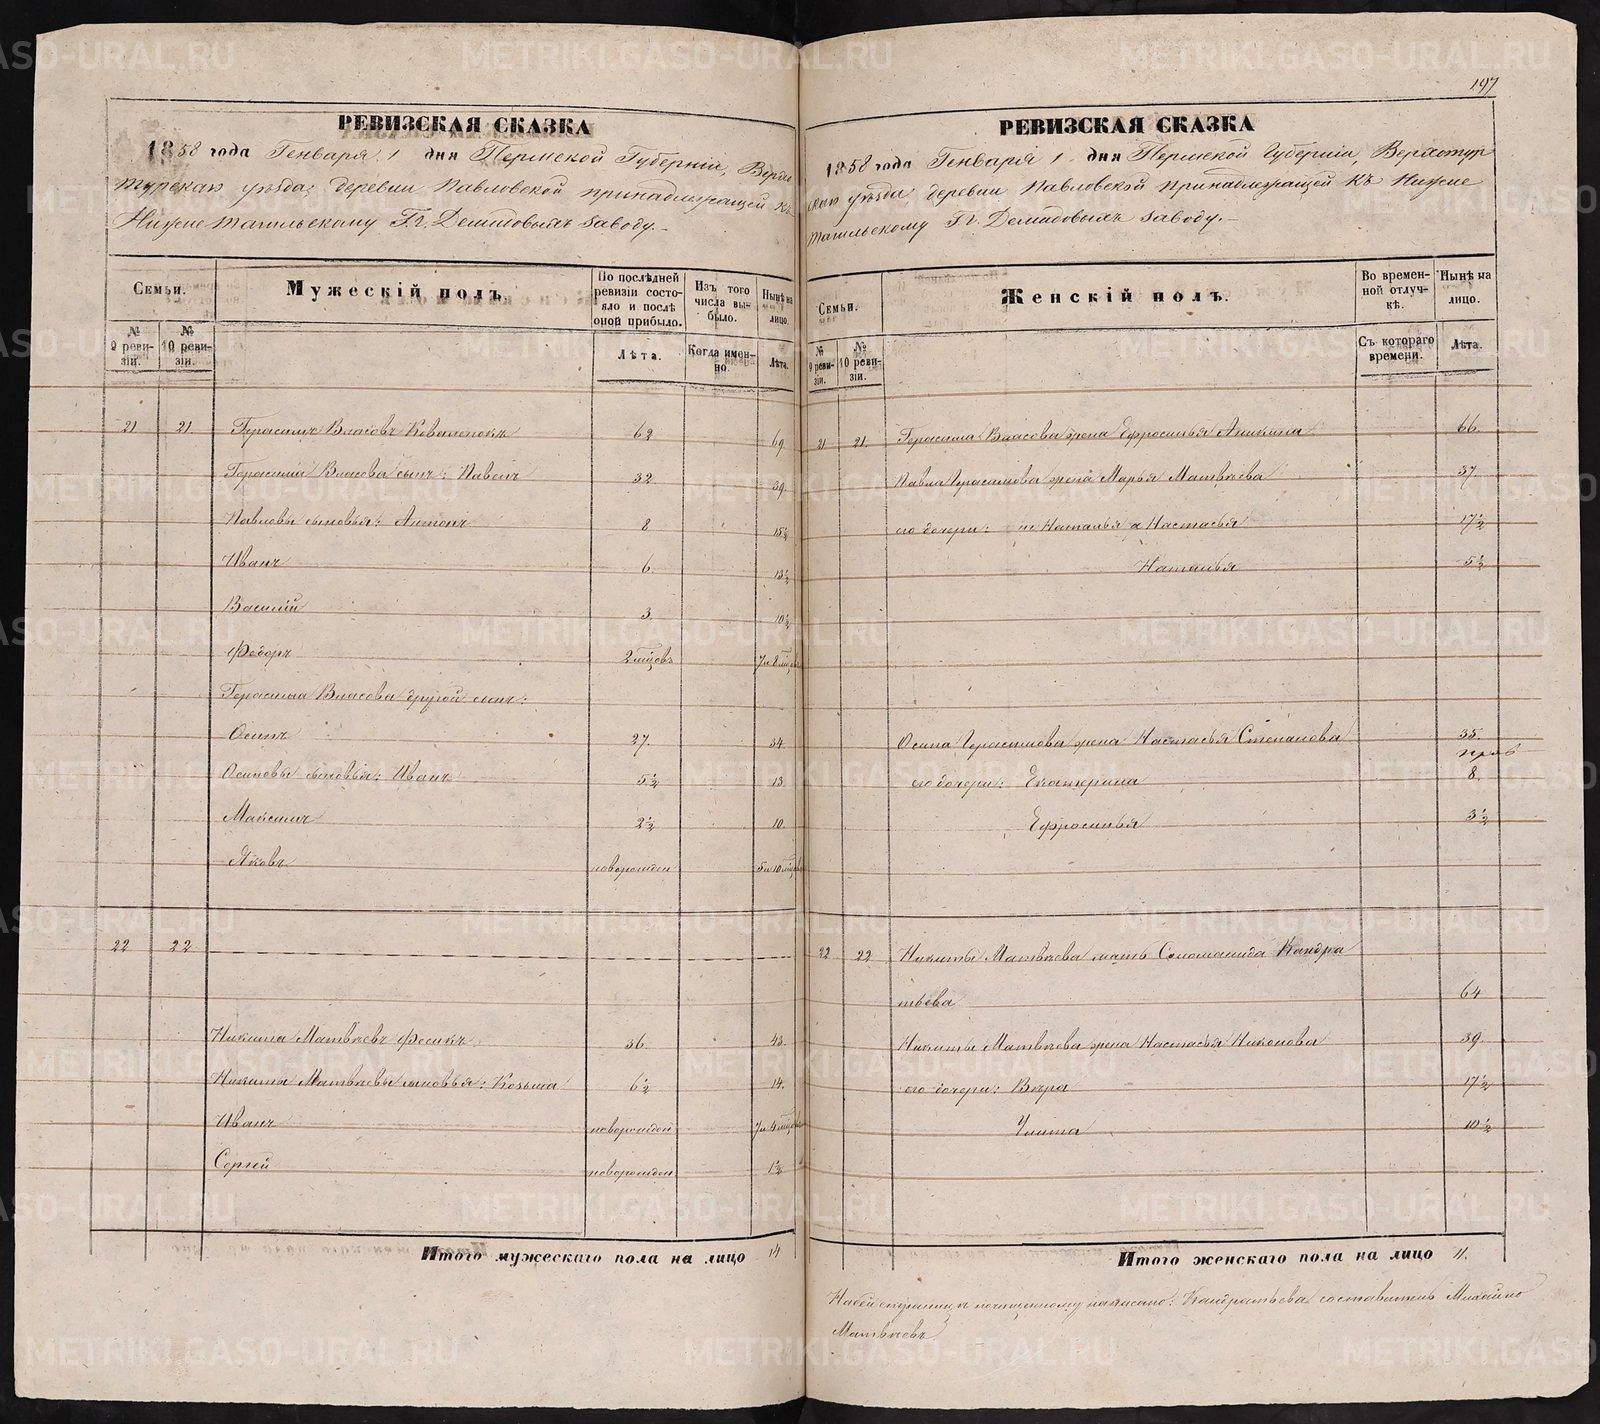 РЕВИЗСКАЯ СКАЗКА
1858 года Генваря 1 дня Пермской Губерніи, Верхо
турскаго уѣзда, деревни Павловской принадлежащей къ
Нижнетагильскому Г.г. Демидовыхъ заводу.-
Семьи.
Мужескій полъ.
По послѣдней ревизіи состояло и послѣ оной прибыло.
Изъ того числа выбыло.
Нынѣ на лицо.
№ 9 ревизіи.
№ 10 ревизіи.
Лѣта.
Когда именно.
Лѣта.
21 21 Герасимъ Власовъ Коваленокъ 62 69
Герасима Власова сынъ: Павелъ 32 39.
Павловы сыновья: Антонъ 8 15½
Иванъ 6. 13½
Василій 3. 10½
Федоръ 2 мѣцовъ 7 и 8 мѣцов
Герасима Власова другой сынъ:
Осипъ 27. 34.
Осиповы сыновья: Иванъ 5½ 13.
Максимъ 2½ 10.
Яковъ новорожден 5 и 10 мѣцов
22 22
Никита Матвѣевъ 36. 43.
Никиты Матвѣевы сыновья: Козьма 6½ 14.
Иванъ новорожден 7 и 4 мѣцов
Сергѣй новорожден 1½
Итого мужескаго пола на лицо 14
197
РЕВИЗСКАЯ СКАЗКА
1858 года Генваря 1 дня Пермской Губерніи, Верхотур
скаго уѣзда, деревни Павловской принадлежащей къ Нижне
тагильскому Г.г. Демидовыхъ заводу.-
Семьи.
Женскій полъ.
Во временной отлучкѣ.
Нынѣ на лицо.
№ 9 ревизіи.
№ 10 ревизіи.
Съ котораго времени.
Лѣта.
21 21. Герасима Власова жена Ефросинья Аникина 66.
Павла Герасимова жена Марья Матвѣева 37.
его дочери: не Наталья а Настасья 17½
Наталья 5½
Осипа Герасимова жена Настасья Степанова 35.
его дочери: Екатерина 8.
Ефросинья 3½
22 22 Никиты Матвѣева мать Соломанида Кандра
тьева 64
Никиты Матвѣева жена Настасья Никонова 39.
его дочери: Вѣра 17½
Улита 10½
Итого женскаго пола на лицо 11.
На сей страницѣ почищенному написано: Кандратьева составитель Михайло
Матвѣевъ
METRIKI.GASO-URAL.RU